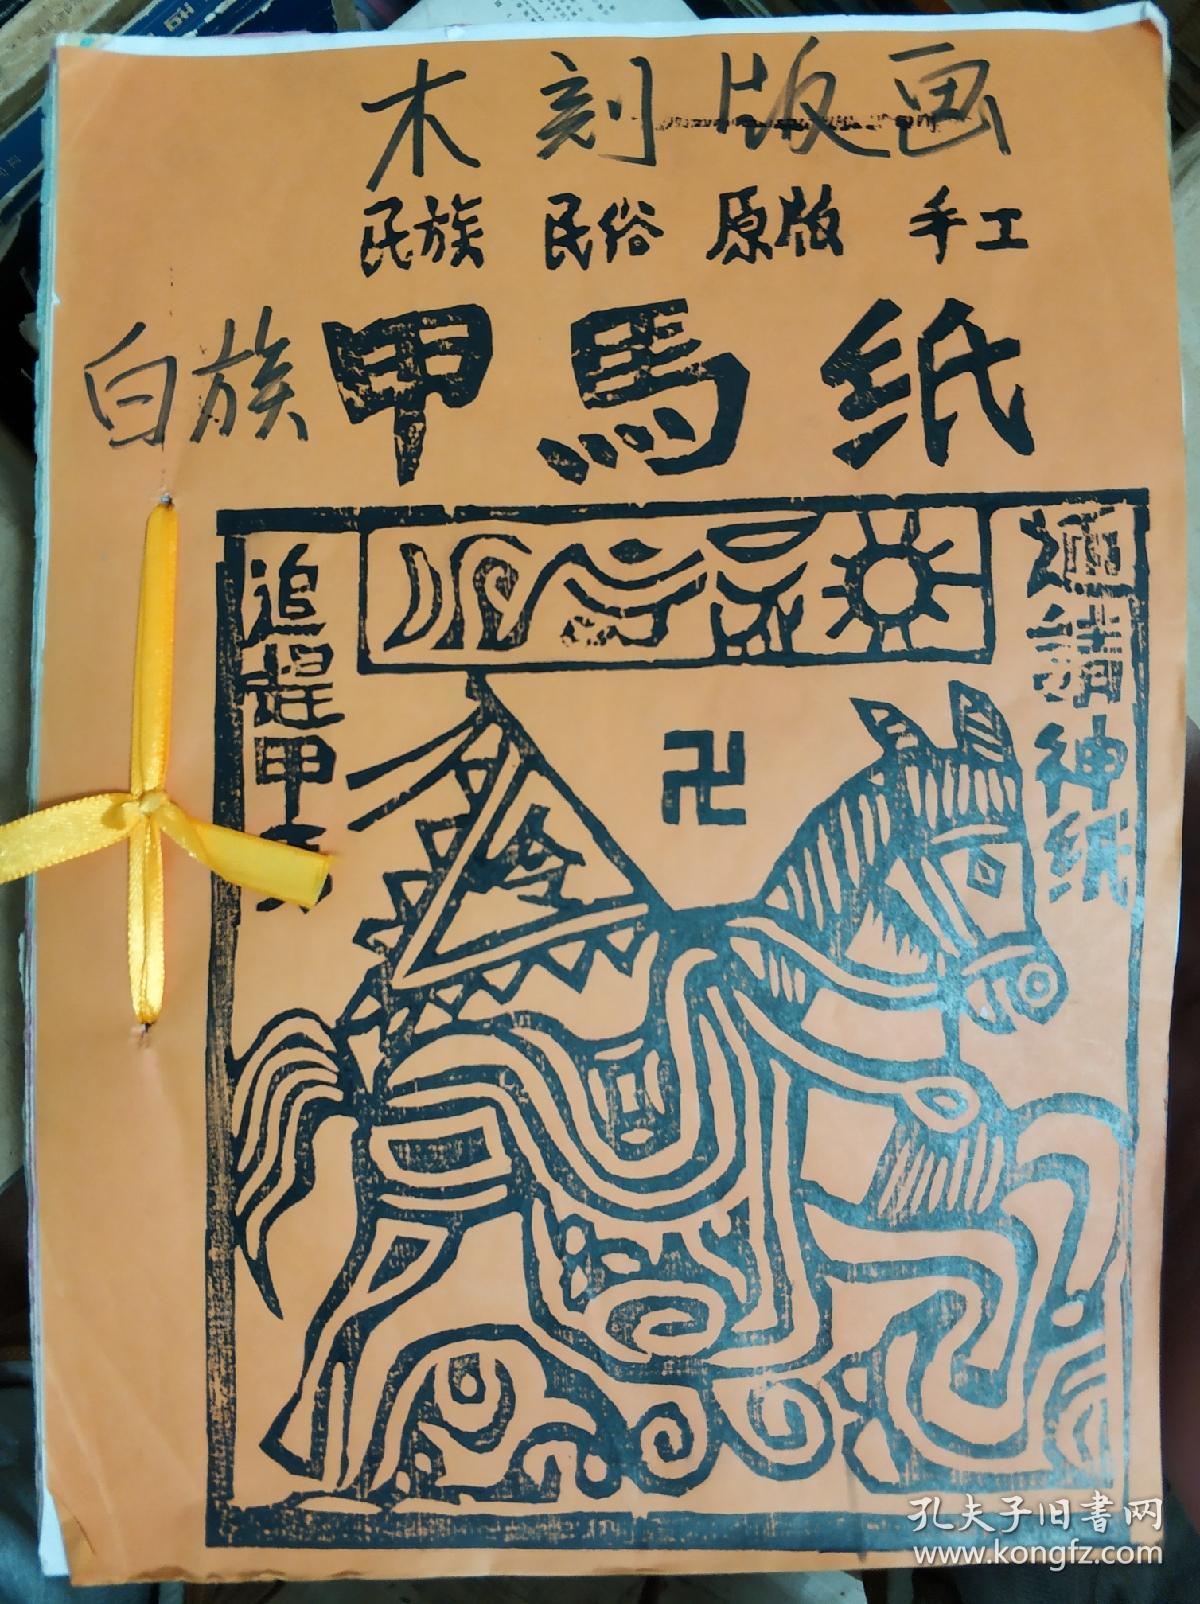 木刻版画
民族 民俗 原版 手工
白族 甲馬纸
追趕甲馬
請神紙
令
卍
孔夫子旧书网
www.kongfz.com